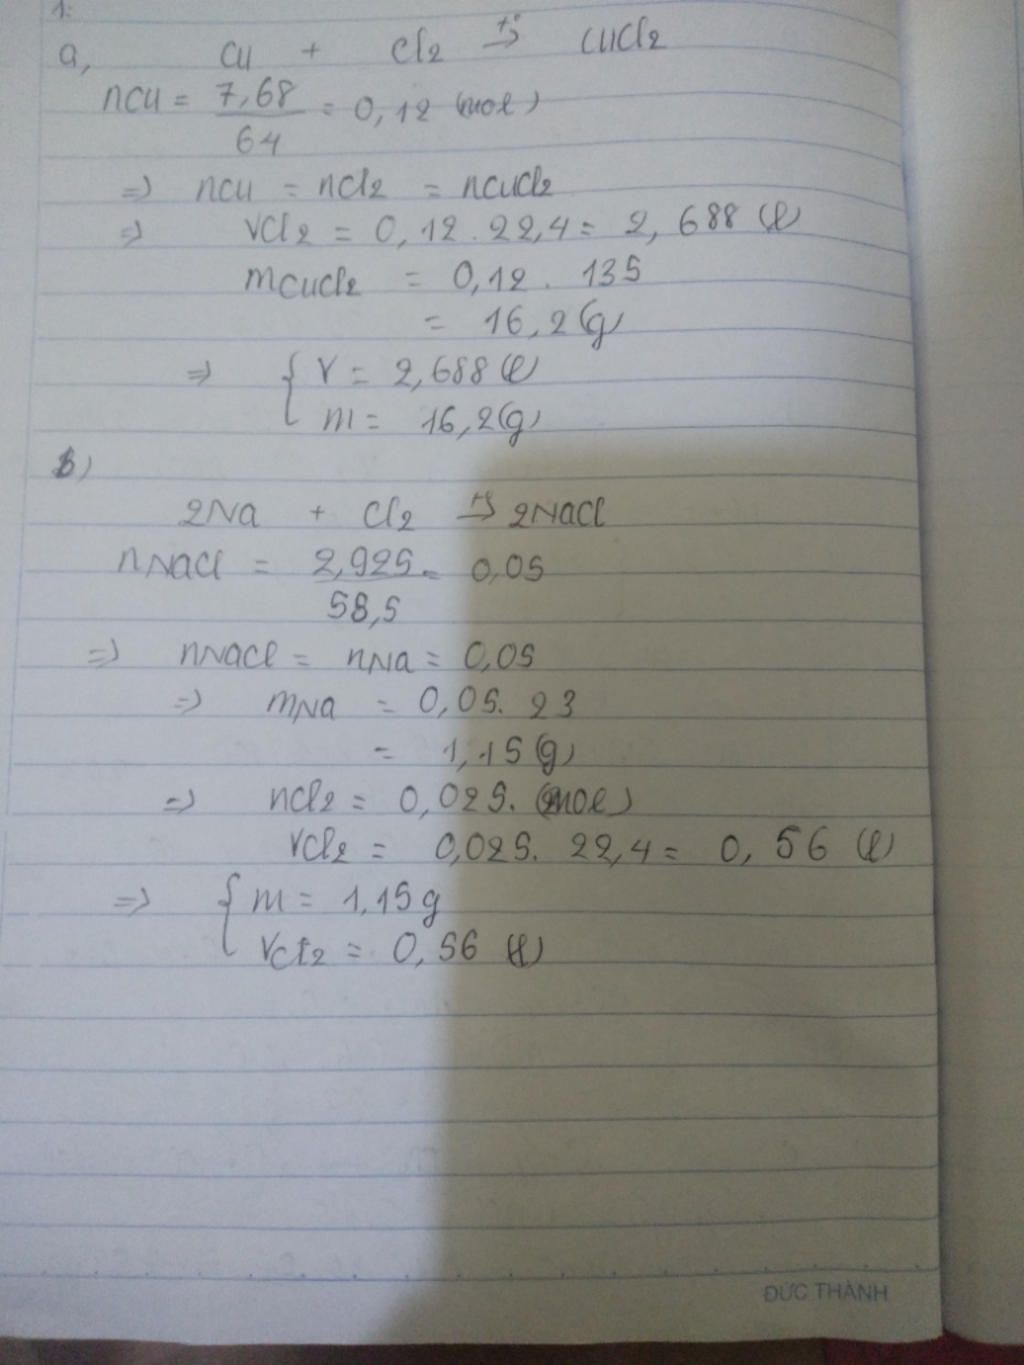 1:
a, Cu + Cl2 t°→ CuCl2
nCu = 7,68/64 = 0,12 (mol)
=) nCu = nCl2 = nCuCl2
=) VCl2 = 0,12 . 22,4 = 2,688 (l)
mCuCl2 = 0,12 . 135
= 16,2 (g)
=) { V = 2,688 (l)
m = 16,2 (g)
b)
2Na + Cl2 t°→ 2NaCl
nNaCl = 2,925/58,5 = 0,05
=) nNaCl = nNa = 0,05
=) mNa = 0,05. 23
= 1,15 (g)
=) nCl2 = 0,025. (mol)
VCl2 = 0,025. 22,4 = 0,56 (l)
=) { m = 1,15g
VCl2 = 0,56 (l)
ĐỨC THÀNH